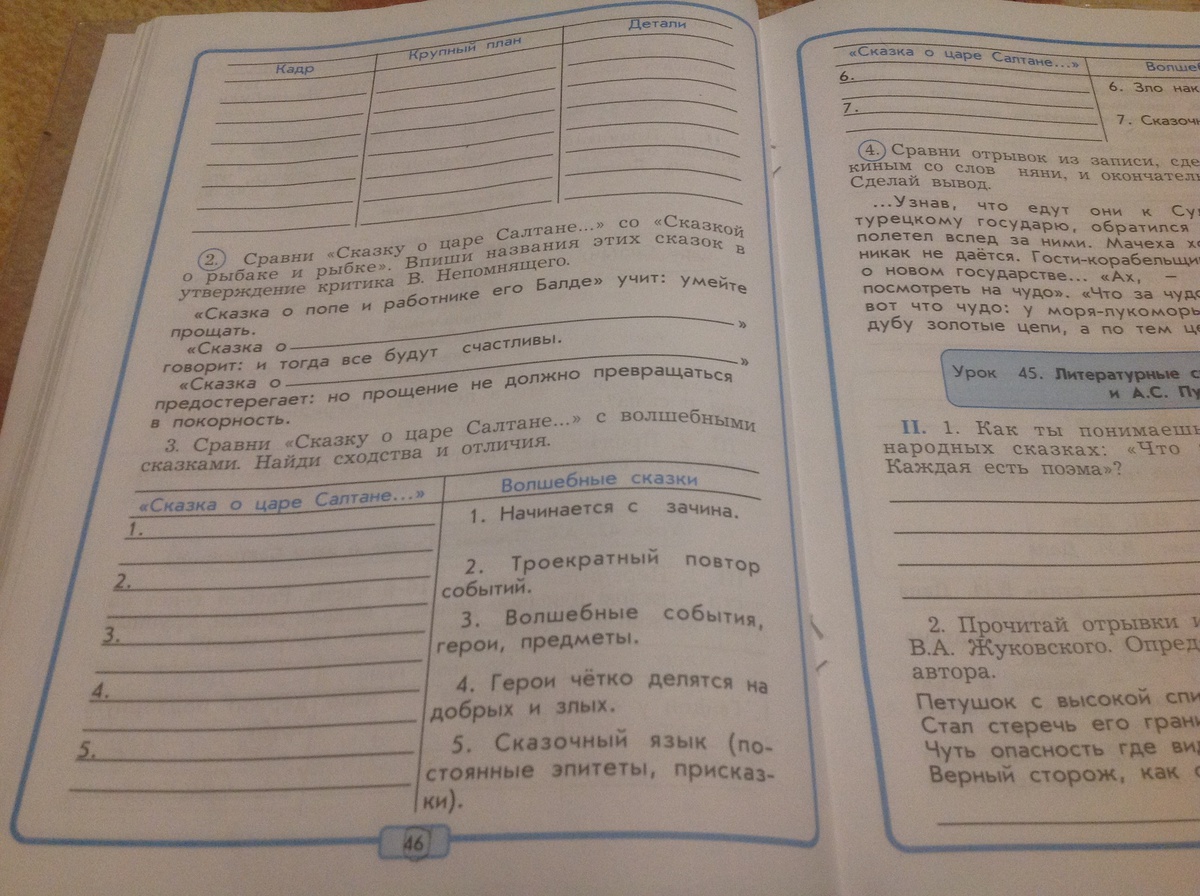 Кадр
Крупный план
Детали
2. Сравни «Сказку о царе Салтане...» со «Сказкой
о рыбаке и рыбке». Впиши названия этих сказок в
утверждение критика В. Непомнящего.
«Сказка о попе и работнике его Балде» учит: умейте
прощать.
«Сказка о »
говорит: и тогда все будут счастливы.
«Сказка о »
предостерегает: но прощение не должно превращаться
в покорность.
3. Сравни «Сказку о царе Салтане...» с волшебными
сказками. Найди сходства и отличия.
«Сказка о царе Салтане...»
1.
2.
3.
4.
5.
Волшебные сказки
1. Начинается с зачина.
2. Троекратный повтор
событий.
3. Волшебные события,
герои, предметы.
4. Герои чётко делятся на
добрых и злых.
5. Сказочный язык (по-
стоянные эпитеты, присказ-
ки).
46
«Сказка о царе Салтане...»
6.
7.
6. Зло
7.
4. Сравни отрывок из записи,
киным со слов няни, и
Сделай вывод.
...Узнав, что едут они к
турецкому государю, обратился
полетел вслед за ними. Мачеха
никак не даётся.
о новом государстве... «Ах, –
посмотреть на чудо». «Что за
вот что чудо: у
дубу золотые цепи, а по тем
Урок 45. Литературные
и А.С.
II. 1. Как ты
народных сказках: «Что
Каждая есть поэма»?
2. Прочитай отрывки
В.А. Жуковского.
автора.
Петушок с высокой
Стал стеречь его
Чуть опасность где
Верный сторож, как